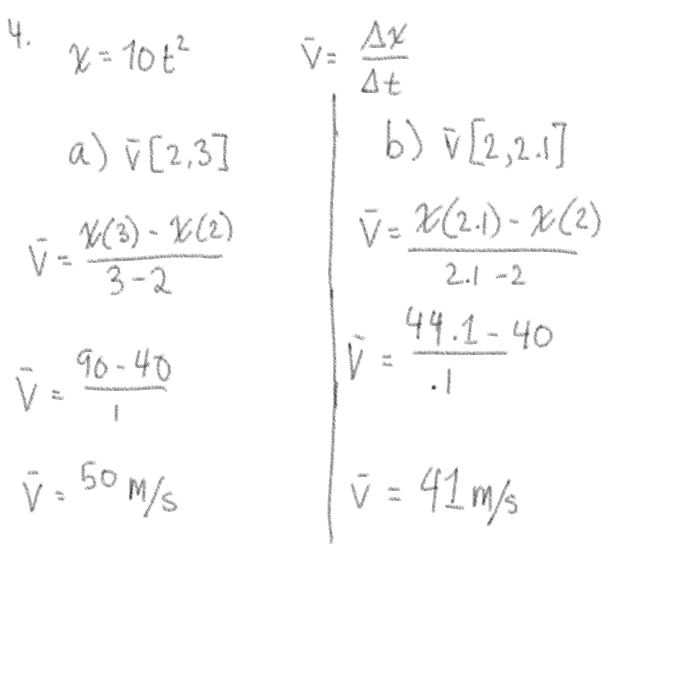 4.
x = 10t²
v̄ = Δx/Δt
a) v̄ [2,3]
v̄ = x(3) - x(2) / 3 - 2
v̄ = 90 - 40 / 1
v̄ = 50 m/s
b) v̄ [2, 2.1]
v̄ = x(2.1) - x(2) / 2.1 - 2
v̄ = 44.1 - 40 / .1
v̄ = 41 m/s